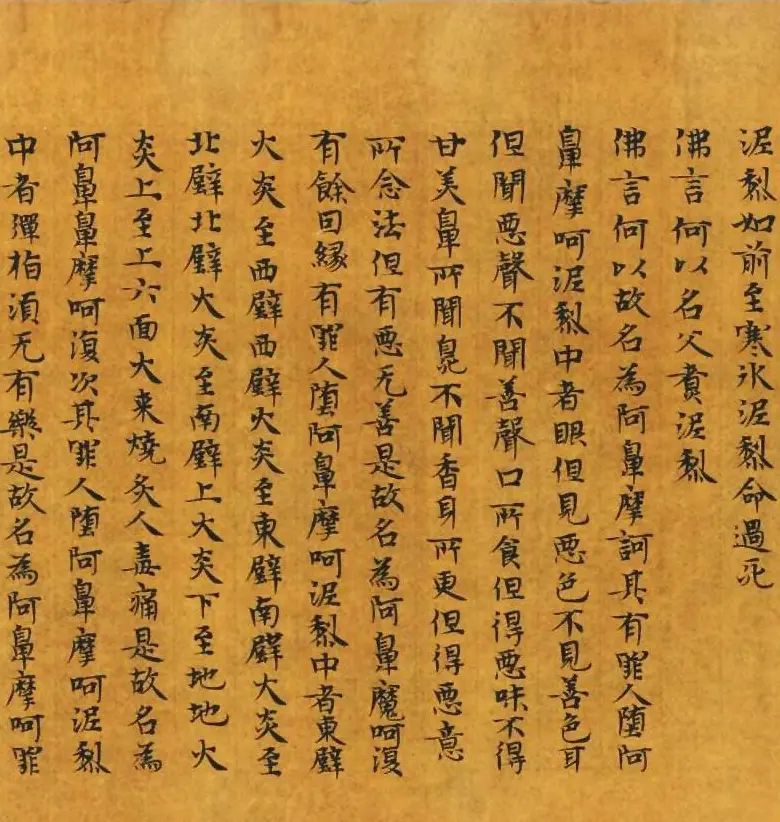 泥梨如前至寒氷泥梨命過死
佛言何以名父賷泥梨
佛言何以故名為阿鼻摩訶其有罪人堕阿
鼻摩呵泥梨中者眼但見惡色不見善色耳
但聞惡聲不聞善聲口所食但得惡味不得
甘美鼻所聞臰不聞香身所更但得惡意
所念法但有惡无善是故名為阿鼻魔呵復
有餘因緣有罪人堕阿鼻摩呵泥梨中者東壁
火炎至西壁西壁火炎至東壁南壁火炎至
北壁北壁火炎至南壁上火炎下至地地火
炎上至上六面火来燒炙人毒痛是故名為
阿鼻鼻摩呵復次其罪人堕阿鼻摩呵泥梨
中者彈指湏无有樂是故名為阿鼻摩呵罪